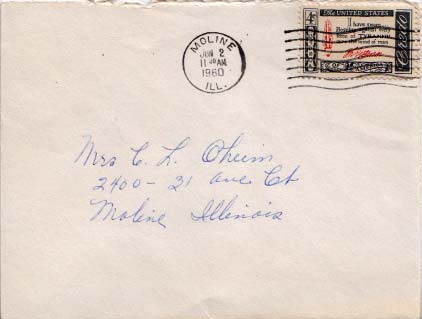 MOLINE
JUN 2
11 30 AM
1960
ILL.
The UNITED STATES
I have sworn
Hostility against every
form of TYRANNY
over the mind of man
Credo
4¢
Mrs C. L. Oheim
2400-21 ave Ct
Moline, Illinois